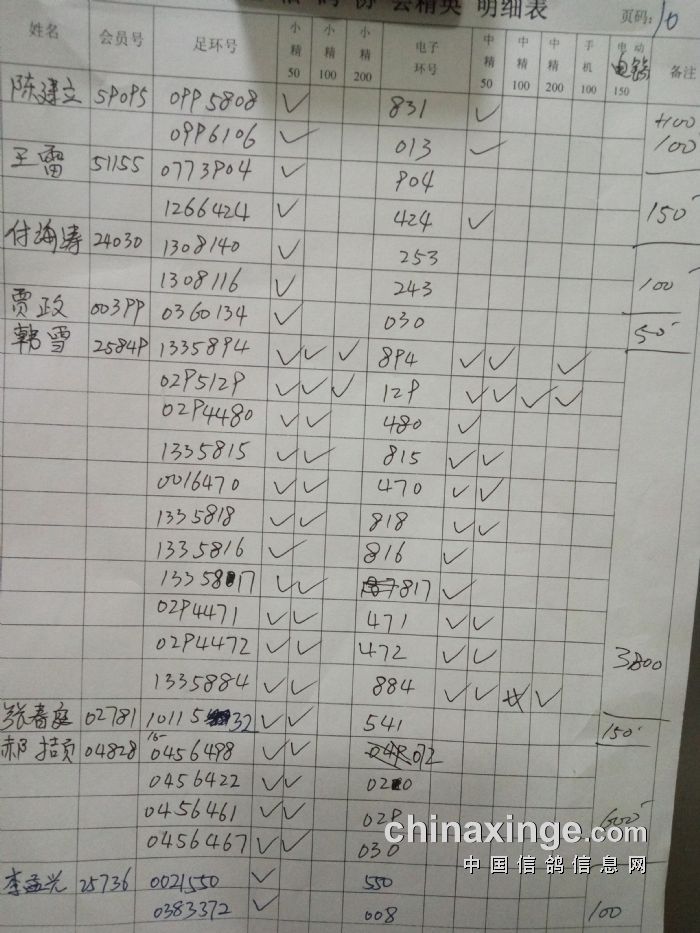 会精英 明细表
页码: 10
姓名 会员号 足环号 小精50 小精100 小精200 电子环号 中精50 中精100 中精200 手机100 电动150 备注
陈建立 59095 0995808 ✓ 831 ✓ +100
0996106 ✓ 013 ✓ 100
王雷 51155 0773904 ✓ 904
1266424 ✓ 424 ✓ 150
付海涛 24030 1308140 ✓ 253
1308116 ✓ 243 100
贾政 00399 0360134 ✓ 030 50
韩雪 25849 1335894 ✓ ✓ ✓ 894 ✓ ✓ ✓
0295129 ✓ ✓ ✓ 129 ✓ ✓ ✓ ✓
0294480 ✓ ✓ 480 ✓
1335815 ✓ ✓ 815 ✓ ✓
0016470 ✓ ✓ 470 ✓ ✓
1335818 ✓ ✓ 818 ✓ ✓
1335816 ✓ 816 ✓
1335817 ✓ ✓ 817 ✓
0294471 ✓ ✓ 471 ✓ ✓
0294472 ✓ ✓ 472 ✓ ✓ 3800
1335884 ✓ ✓ 884 ✓ ✓ ✓
张春庭 02781 10115 32 ✓ ✓ 541 150
郝 04828 0456498 ✓ ✓ 012
0456422 ✓ ✓ 020
0456461 ✓ ✓ 029 600
0456467 ✓ ✓ 030
chinaxinge.com
中国信鸽信息网
李孟光 25736 0021550 ✓ 550
0383372 ✓ 008 100